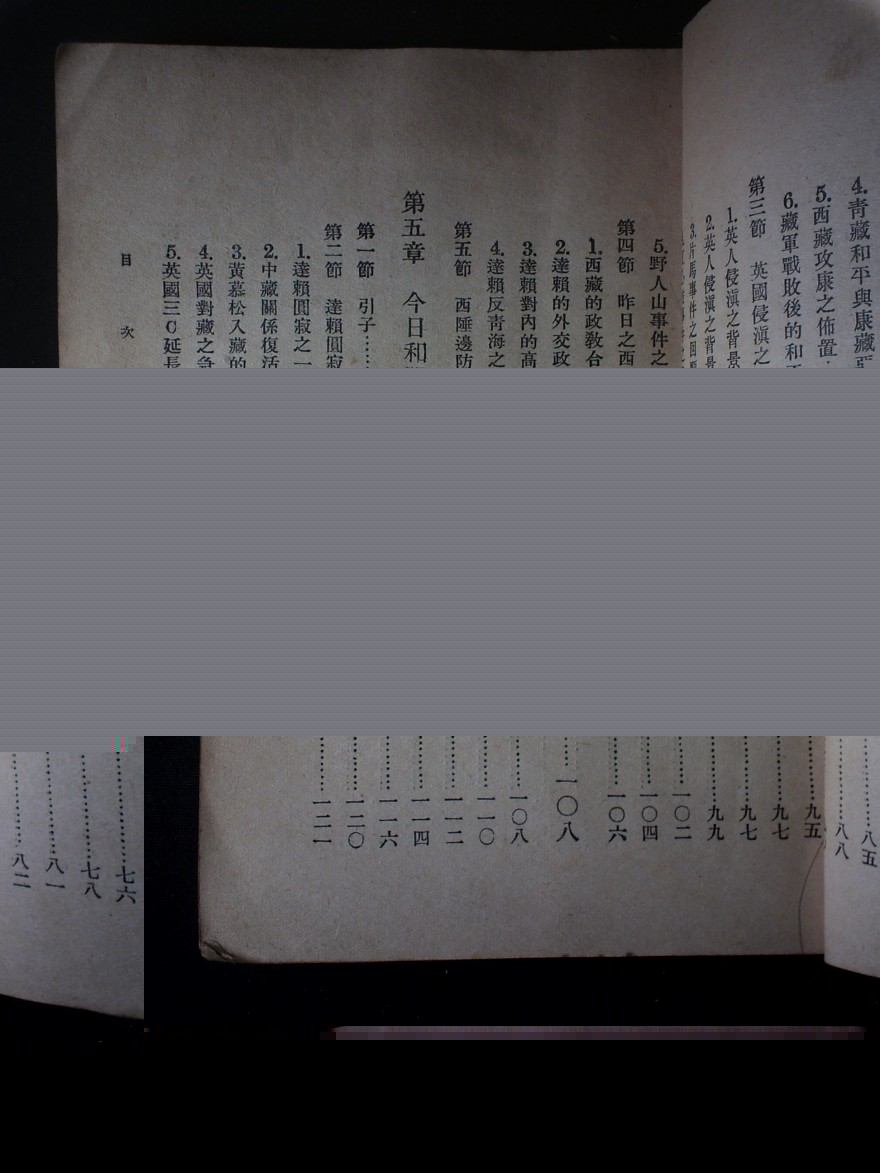 4.青藏和平與康藏
5.西藏攻康之佈置
6.藏軍戰敗後的和
第三節 英國侵滇之
1.英人侵滇之背景
2.英人侵滇之背景
3.片馬事件之
5.野人山事件之
第四節 昨日之西
1.西藏的政教台
2.達賴的外交政
3.達賴對內的高
4.達賴反青海之
第五節 西陲邊防
第五章 今日和
第一節 引子……
第二節 達賴圓寂
1.達賴圓寂之一
2.中藏關係復活
3.黃慕松入藏的
4.英國對藏之急
5.英國三C延長
目 次
八五
八八
九五
九七
九七
九九
一〇二
一〇四
一〇六
一〇八
一〇八
一一〇
一一二
一一四
一一六
一二〇
一二一
七六
七八
八一
八二